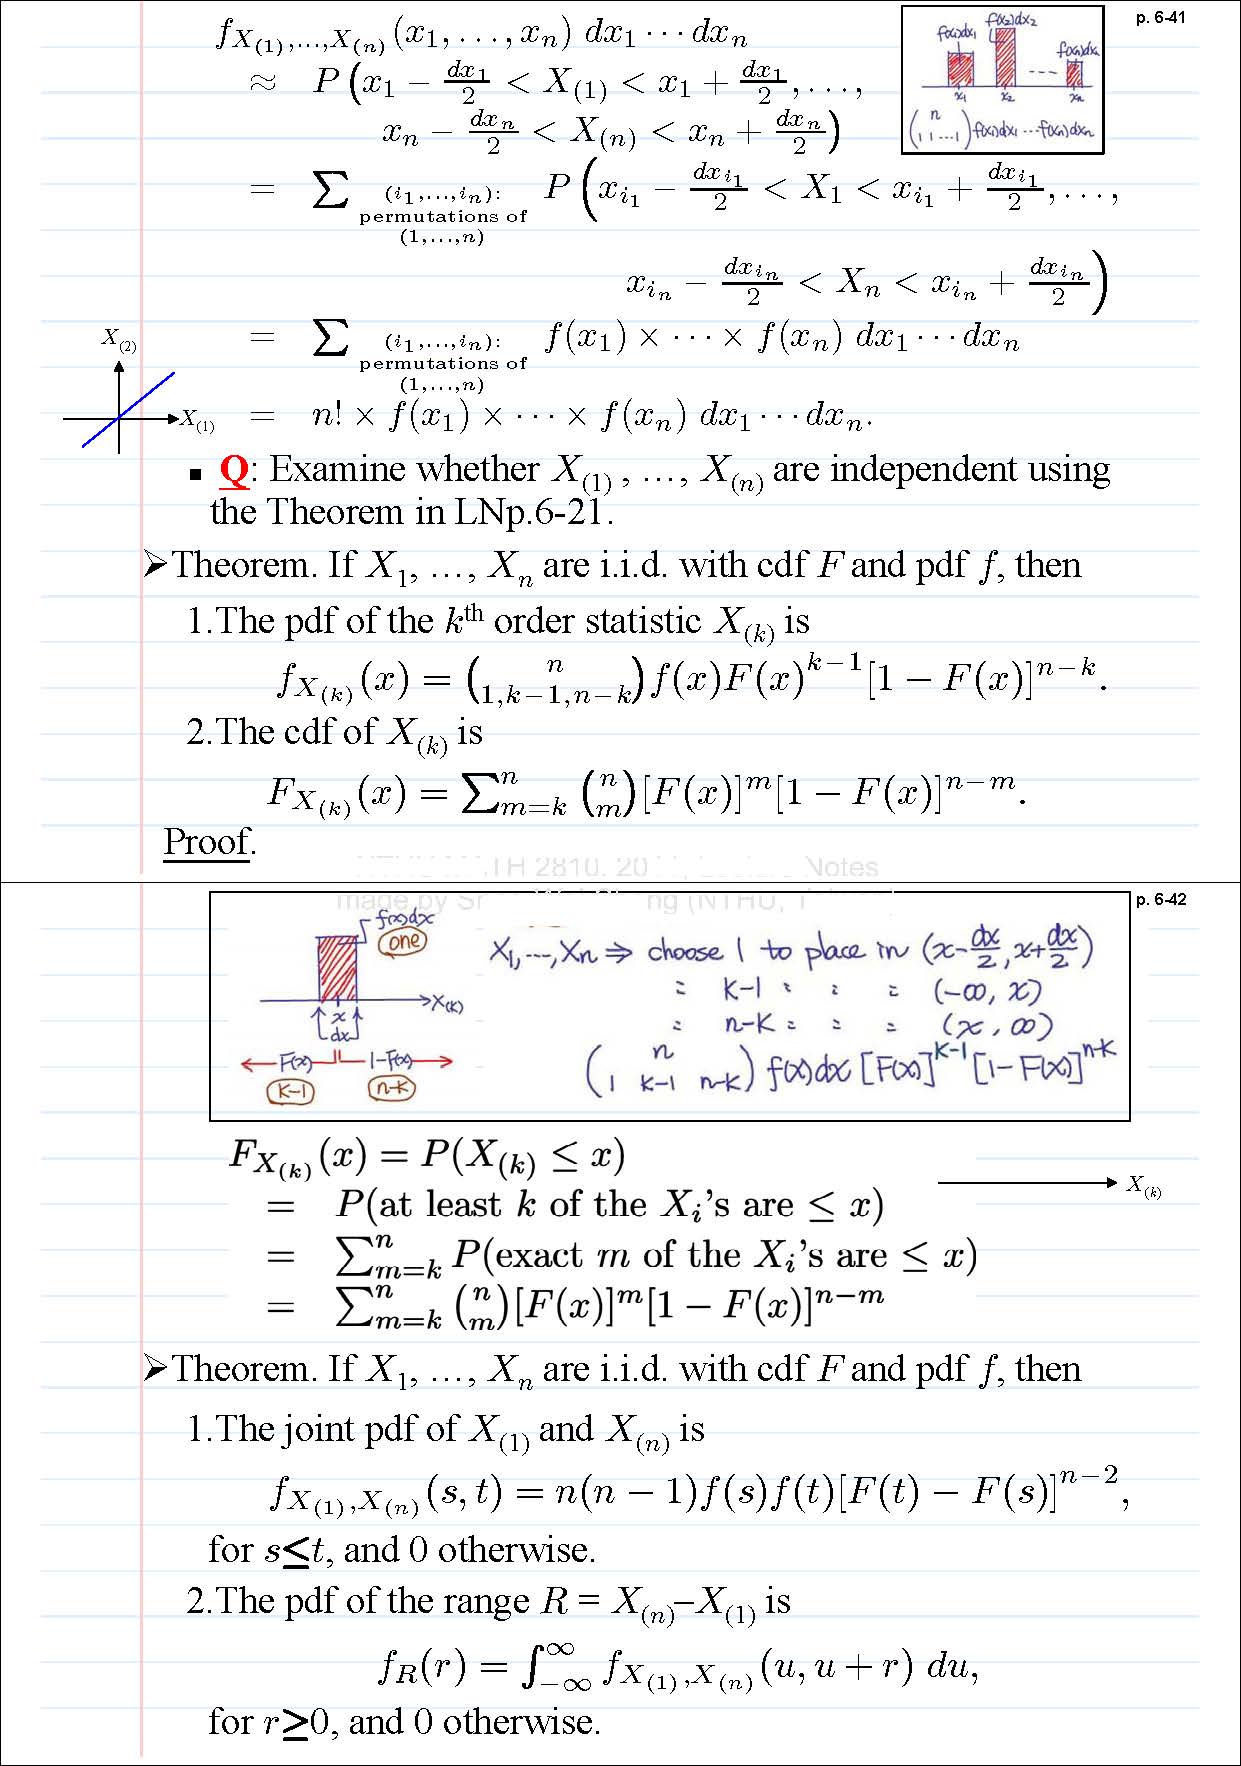 p. 6-41
f_{X_{(1)},…,X_{(n)}}(x_1, …, x_n) dx_1 ⋯ dx_n
≈ P(x_1 − dx_1/2 < X_{(1)} < x_1 + dx_1/2, …,
x_n − dx_n/2 < X_{(n)} < x_n + dx_n/2)
f(x_1)dx_1 f(x_2)dx_2 f(x_n)dx_n
x_1 x_2 ---- x_n
(n / 1 1 ⋯ 1) f(x_1)dx_1 ⋯ f(x_n)dx_n
= ∑_{(i_1,…,i_n): permutations of (1,…,n)} P(x_{i_1} − dx_{i_1}/2 < X_1 < x_{i_1} + dx_{i_1}/2, …,
x_{i_n} − dx_{i_n}/2 < X_n < x_{i_n} + dx_{i_n}/2)
= ∑_{(i_1,…,i_n): permutations of (1,…,n)} f(x_1) × ⋯ × f(x_n) dx_1 ⋯ dx_n
= n! × f(x_1) × ⋯ × f(x_n) dx_1 ⋯ dx_n.
X_{(2)}
X_{(1)}
▪ Q: Examine whether X_{(1)}, …, X_{(n)} are independent using
the Theorem in LNp.6-21.
➢Theorem. If X_1, …, X_n are i.i.d. with cdf F and pdf f, then
1.The pdf of the k^{th} order statistic X_{(k)} is
f_{X_{(k)}}(x) = (n / 1,k−1,n−k) f(x)F(x)^{k−1}[1 − F(x)]^{n−k}.
2.The cdf of X_{(k)} is
F_{X_{(k)}}(x) = ∑_{m=k}^{n} (n / m) [F(x)]^m[1 − F(x)]^{n−m}.
Proof.
TH 2810, 20 Notes
made by ng (NTHU,
p. 6-42
f(x)dx
one
X_{(k)}
x
dx
F(x) 1-F(x)
k-1 n-k
X_1, ⋯, X_n ⇒ choose 1 to place in (x − dx/2, x + dx/2)
= k-1 = = = (-∞, x)
= n-k = = = (x, ∞)
(n / 1 k-1 n-k) f(x)dx [F(x)]^{k-1} [1-F(x)]^{n-k}
F_{X_{(k)}}(x) = P(X_{(k)} ≤ x)
= P(at least k of the X_i's are ≤ x)
= ∑_{m=k}^{n} P(exact m of the X_i's are ≤ x)
= ∑_{m=k}^{n} (n / m) [F(x)]^m[1 − F(x)]^{n−m}
X_{(k)}
➢Theorem. If X_1, …, X_n are i.i.d. with cdf F and pdf f, then
1.The joint pdf of X_{(1)} and X_{(n)} is
f_{X_{(1)},X_{(n)}}(s, t) = n(n − 1)f(s)f(t)[F(t) − F(s)]^{n−2},
for s≤t, and 0 otherwise.
2.The pdf of the range R = X_{(n)}–X_{(1)} is
f_R(r) = ∫_{−∞}^{∞} f_{X_{(1)},X_{(n)}}(u, u + r) du,
for r≥0, and 0 otherwise.